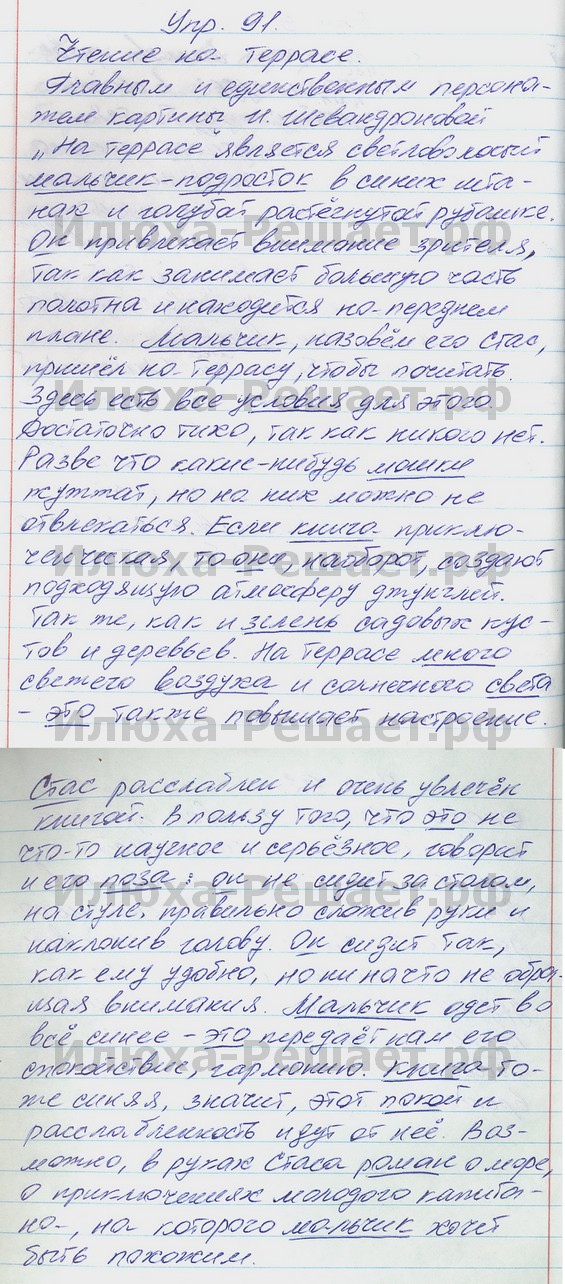 Упр. 91.
Чтение на террасе.
Главным и единственным персона-
жем картины И. Шевандроновой
„На террасе" является светловолосый
мальчик-подросток в синих шта-
нах и голубой растёгнутой рубашке.
Он привлекает внимание зрителя,
так как занимает большую часть
полотна и находится на переднем
плане. Мальчик, назовём его Стас,
пришёл на террасу, чтобы почитать.
Здесь есть все условия для этого.
Достаточно тихо, так как никого нет.
Разве что какие-нибудь мошки
жужжат, но на них можно не
отвлекаться. Если книга приклю-
ченческая, то они, наоборот, создают
подходящую атмосферу джунглей.
Так же, как и зелень садовых кус-
тов и деревьев. На террасе много
свежего воздуха и солнечного света
- это также повышает настроение.
Стас расслаблен и очень увлечён
книгой. В пользу того, что это не
что-то научное и серьёзное, говорит
и его поза: он не сидит за столом,
на стуле, правильно сложив руки и
наклонив голову. Он сидит так,
как ему удобно, но ни на что не обра-
щая внимания. Мальчик одет во
всё синее - это передаёт нам его
спокойствие, гармонию. Книга то-
же синяя, значит, этот покой и
расслабленность идут от неё. Воз-
можно, в руках Стаса роман о море,
о приключениях молодого капита-
на, на которого мальчик хочет
быть похожим.
Илюха-Решает.рф
Илюха-Решает.рф
Илюха-Решает.рф
Илюха-Решает.рф
Илюха-Решает.рф
Илюха-Решает.рф
Илюха-Решает.рф